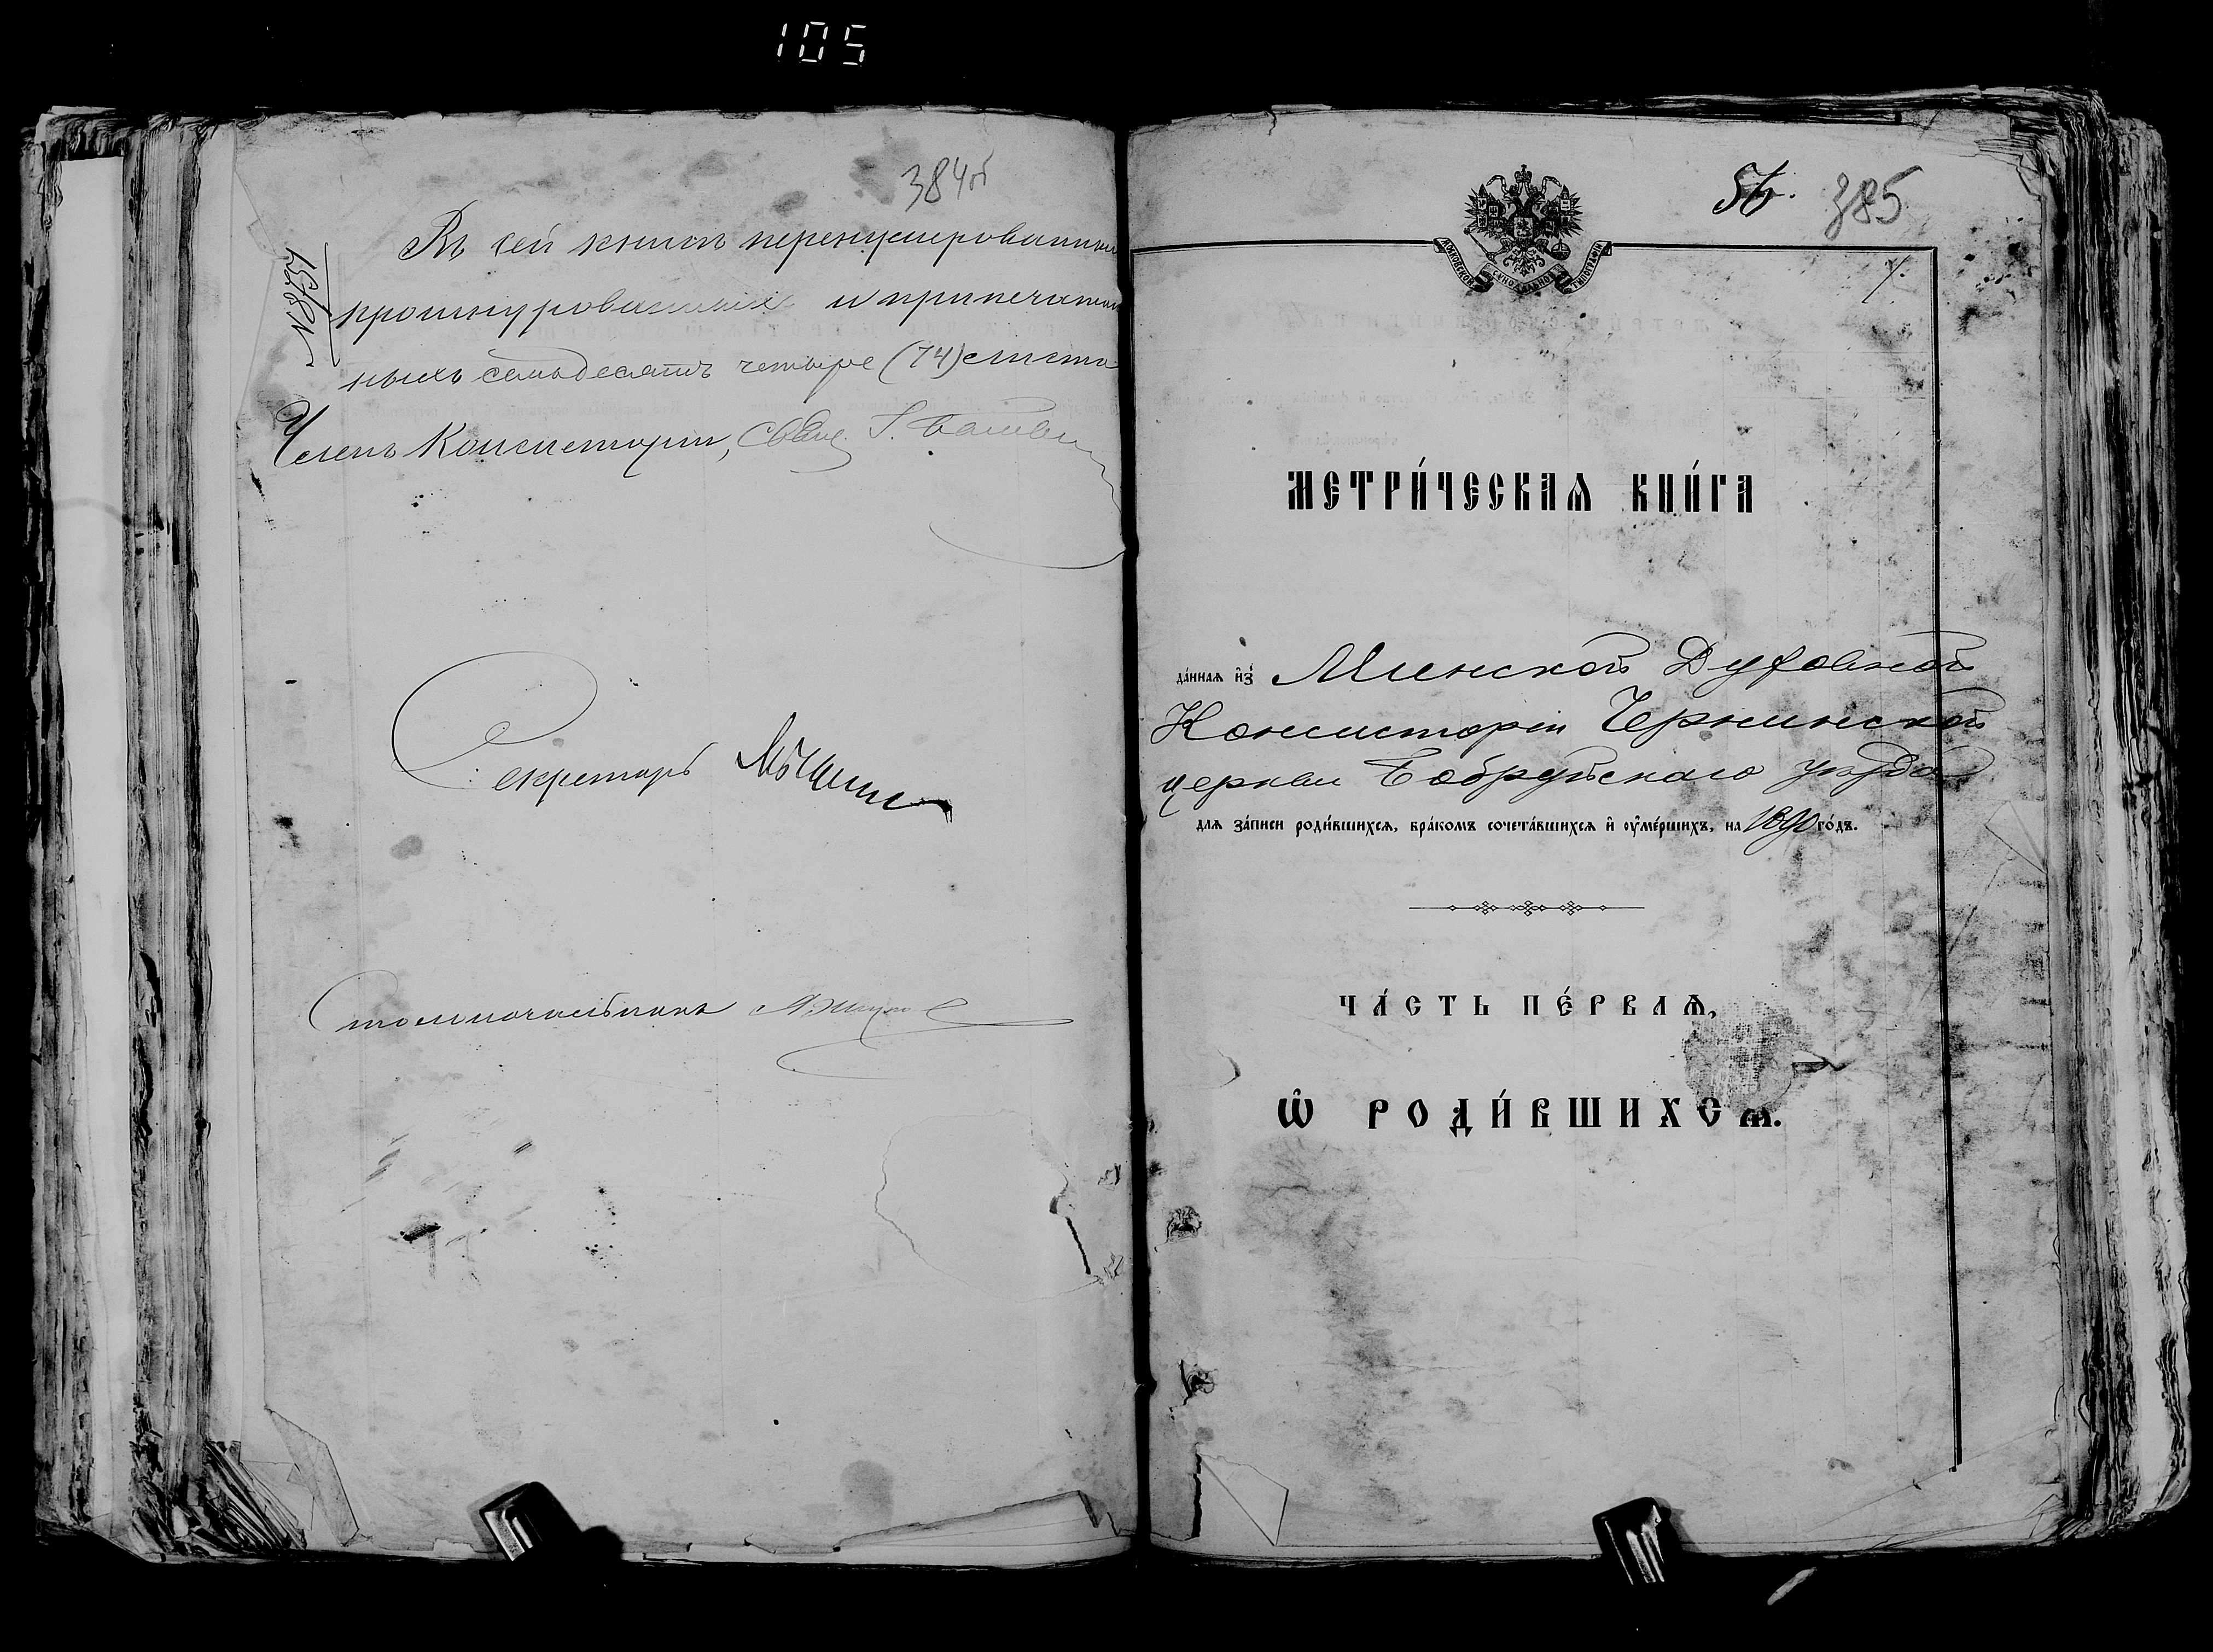 105
384об
№ 8757
Въ сей книгѣ перенумерованны
прошнурованныхъ и припечатан
ныхъ семьдесятъ четыре (74) листа
Членъ Консисторіи, Свящ.
Секретарь
Столоначальникъ
56. 385
МОСКОВСКОЙ СѴНОДАЛЬНОЙ ТИПОГРАФІИ
1.
МЕТРИ́ЧЕСКАѦ КНИ́ГА
да́ннаѧ и҆з̾ Минской Духовной
Консисторіи Чернинской
церкви Бобруйскаго уѣзда
длѧ за́писи роди́вшихсѧ, бра́комъ сочета́вшихсѧ и҆ ᲂу҆ме́ршихъ, на 1890 го́дъ.
ЧА́СТЬ ПЕ́РВАѦ,
Ѽ РОДИ́ВШИХСѦ.